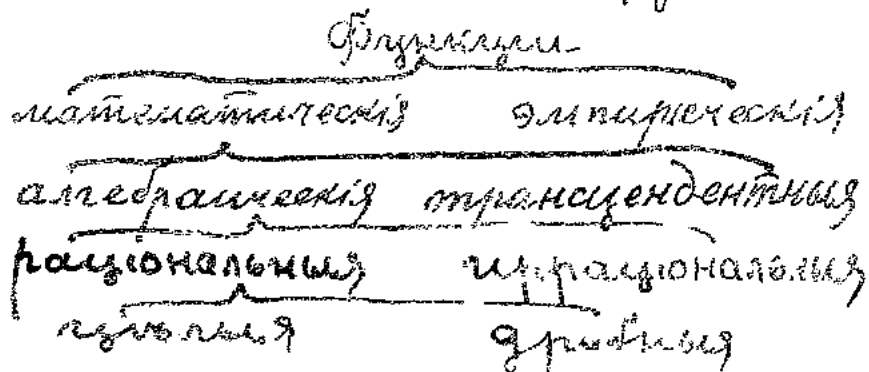 Функціи
математическія эмпирическія
алгебраическія трансцендентныя
раціональныя ирраціональныя
цѣлыя дробныя